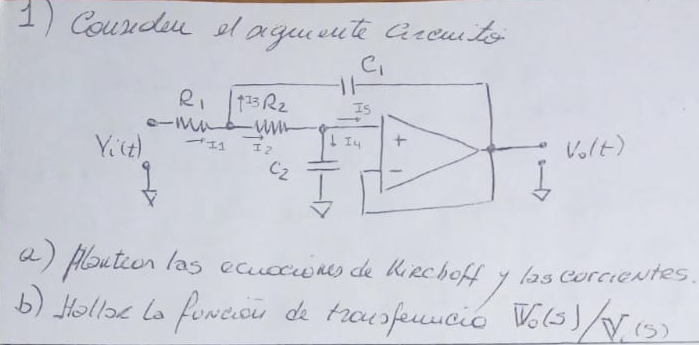 1) Considere el siguiente circuito
C1
R1 I3 R2 I5
Vi(t) I1 I2 I4 + Vo(t)
C2 -
a) Plantear las ecuaciones de Kirchoff y las corrientes.
b) Hallar la función de transferencia Vo(s)/Vi(s)